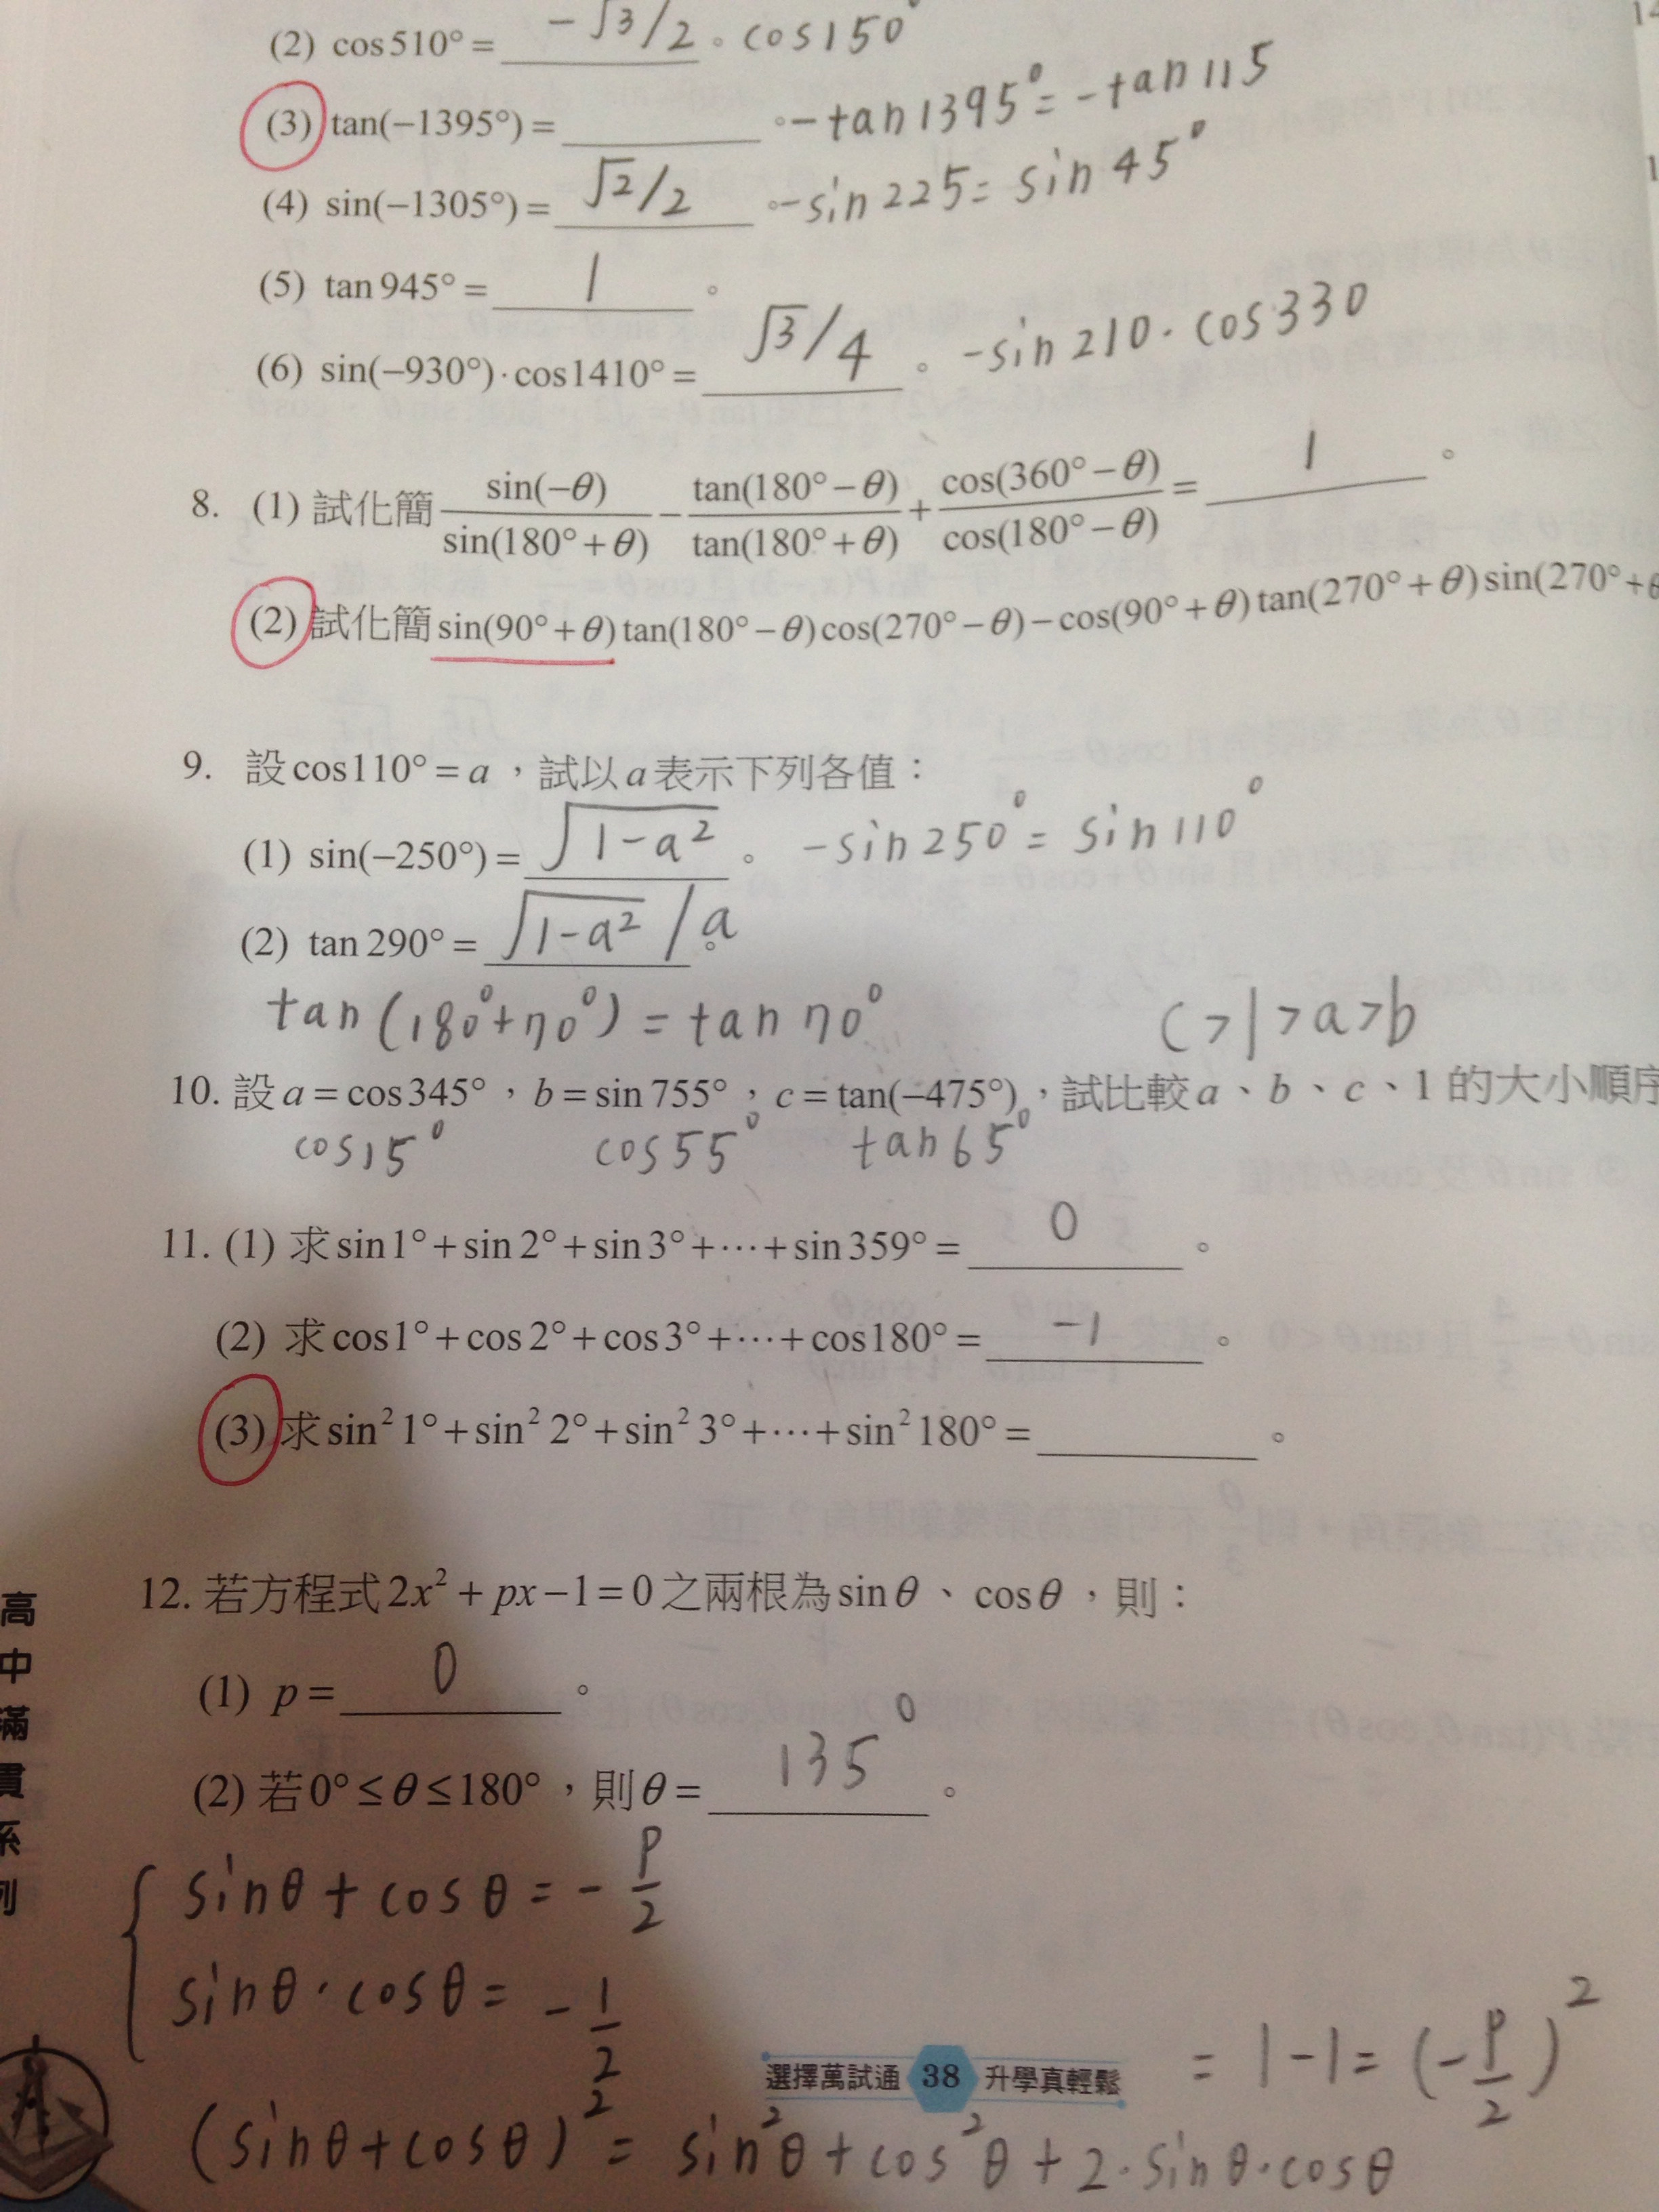 (2) cos510° = -√3/2 。 cos150°
(3) tan(−1395°) = ______ 。 -tan1395° = -tan115
(4) sin(−1305°) = √2/2 。 -sin225 = sin45°
(5) tan945° = 1 。
(6) sin(−930°)·cos1410° = √3/4 。 -sin210·cos330
8. (1) 試化簡 sin(−θ)/sin(180°+θ) − tan(180°−θ)/tan(180°+θ) + cos(360°−θ)/cos(180°−θ) = 1 。
(2) 試化簡 sin(90°+θ)tan(180°−θ)cos(270°−θ)−cos(90°+θ)tan(270°+θ)sin(270°+θ
9. 設cos110° = a，試以a表示下列各值：
(1) sin(−250°) = √(1-a²) 。 -sin250° = sin110°
(2) tan290° = √(1-a²)/a 。
tan(180°+70°) = tan70°
c>1>a>b
10. 設a = cos345°，b = sin755°，c = tan(−475°)，試比較a、b、c、1的大小順序
cos15° cos55° tan65°
11. (1) 求sin1°+sin2°+sin3°+⋯+sin359° = 0 。
(2) 求cos1°+cos2°+cos3°+⋯+cos180° = -1 。
(3) 求sin²1°+sin²2°+sin²3°+⋯+sin²180° = ______ 。
12. 若方程式2x²+px−1=0之兩根為sinθ、cosθ，則：
(1) p = 0 。
(2) 若0°≤θ≤180°，則θ = 135° 。
sinθ+cosθ = -p/2
sinθ·cosθ = -1/2
(sinθ+cosθ)² = sin²θ+cos²θ+2·sinθ·cosθ
= 1-1 = (-p/2)²
選擇萬試通 38 升學真輕鬆
高中滿貫系列